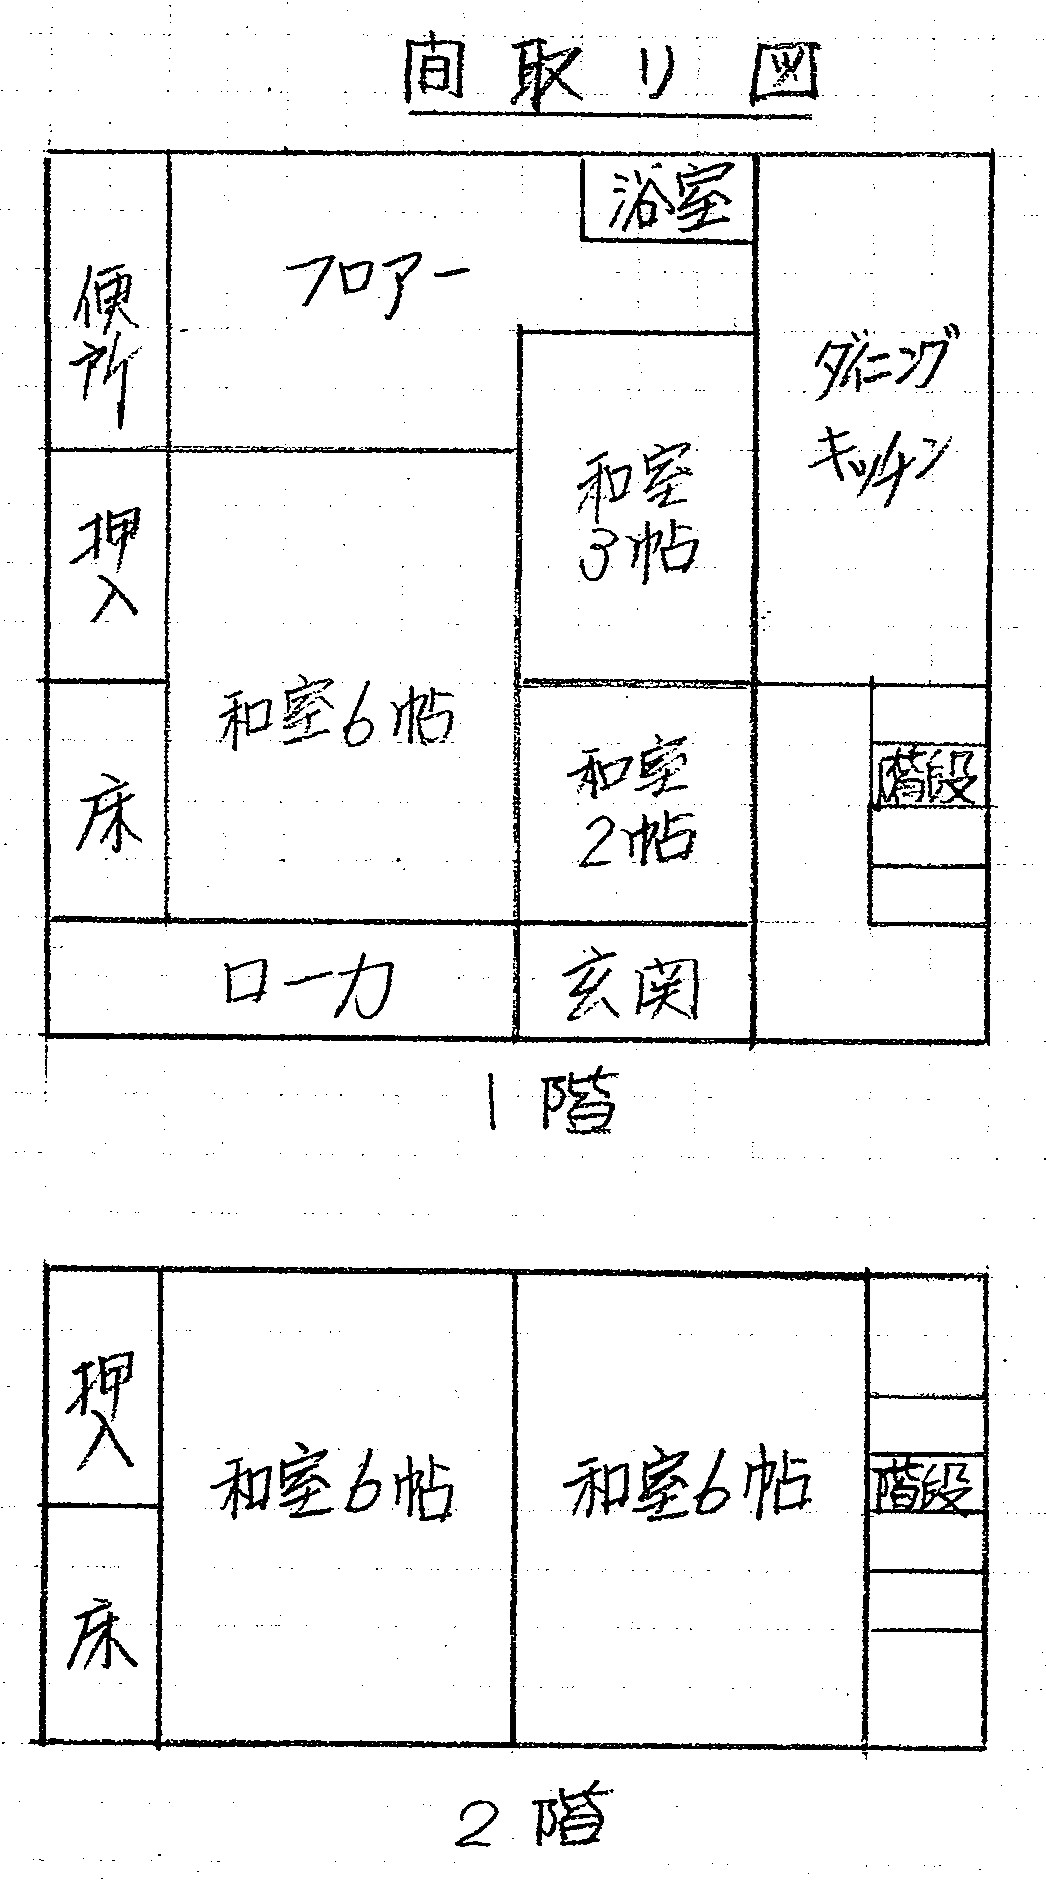 間取り図
浴室
フロアー
便所
ダイニング
キッチン
和室
3帖
押入
和室6帖
和室
2帖
階段
床
ローカ
玄関
1階
押入
和室6帖
和室6帖
階段
床
2階